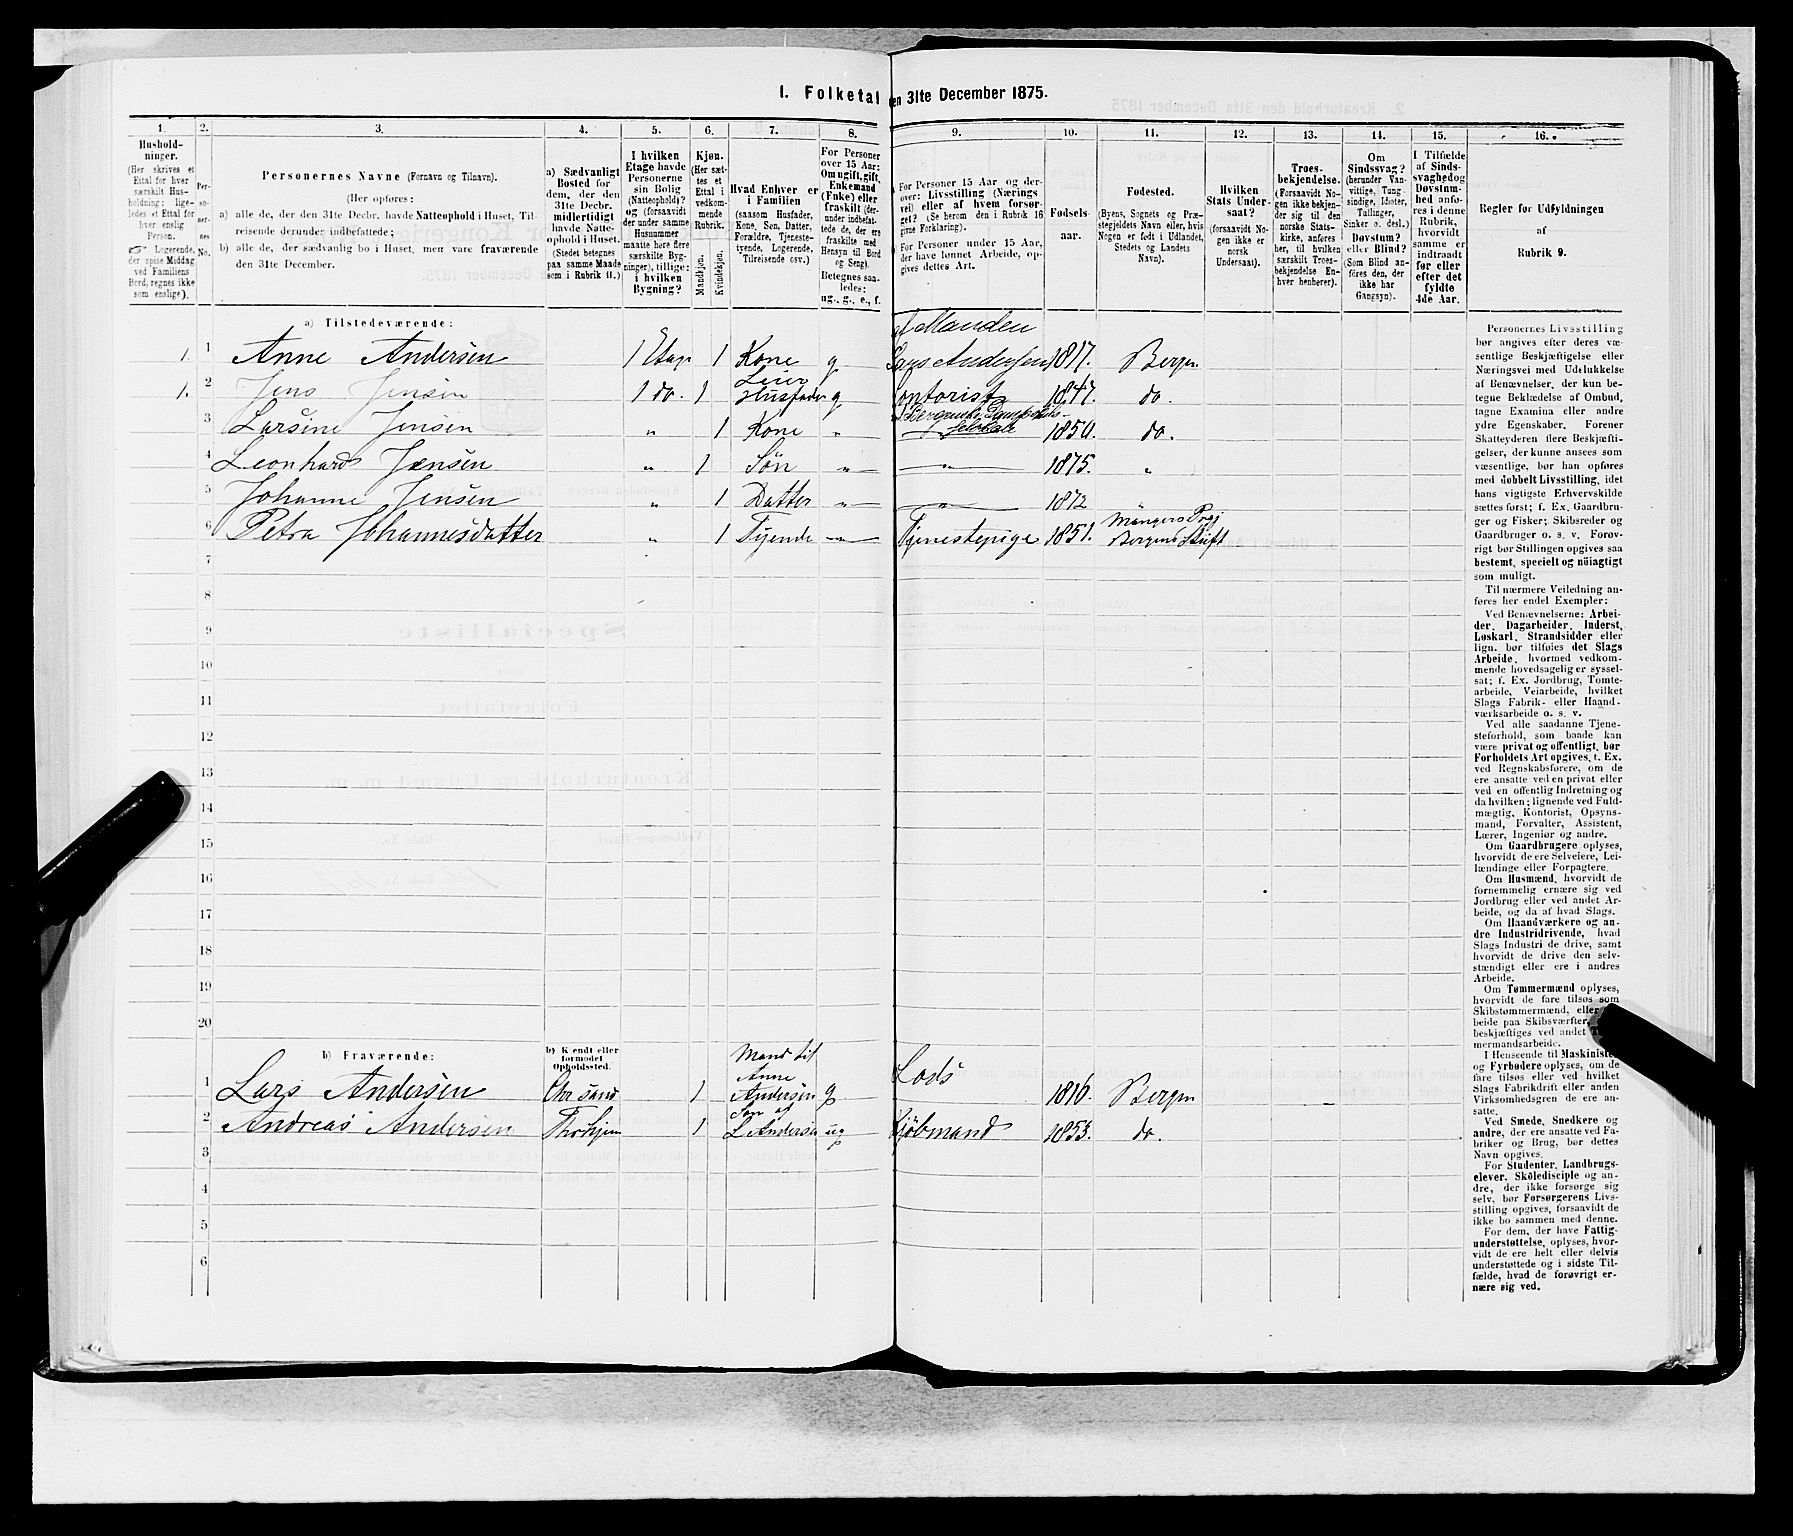 1. Folketal den 31te December 1875.
1. 2. 3. 4. 5. 6. 7. 8. 9. 10. 11. 12. 13. 14. 15. 16.
Hushold-
ninger.
(Her skrives et
Ettal for hver
særskilt Hus-
holdning; lige-
ledes et Ettal for
hver enslig
Person.
Logerende,
der spise Middag
ved Familiens
Bord, regnes ikke
som enslige).
Per-
so-
ner-
nes
No.
Personernes Navne (Fornavn og Tilnavn).
(Her opføres:
a) alle de, der den 31te Decbr. havde Natteophold i Huset, Til-
reisende derunder indbefattede;
b) alle de, der sædvanlig bo i Huset, men vare fraværende
den 31te December.
a) Sædvanligt
Bosted for
dem, der den
31te Decbr.
midlertidigt
havde Natte-
ophold i Huset.
(Stedet betegnes
paa samme Maade
som i Rubrik 11.)
I hvilken
Etage havde
Personerne
sin Bolig
(Natteophold)?
og (forsaavidt
der under samme
Husnummer
maatte høre flere
særskilte Byg-
ninger), tillige:
i hvilken
Bygning?
Kjøn.
(Her sæt-
tes et
Ettal i
vedkom-
mende
Rubrik.
Mandkjøn.
Kvindekjøn.
Hvad Enhver er
i Familien
(saasom Husfader,
Kone, Søn, Datter,
Forældre, Tjeneste-
tyende, Logerende,
Tilreisende osv.)
For Personer
over 15 Aar:
Om ugift, gift,
Enkemand
(Enke) eller
fraskilt (der-
under indbefat-
tede de, der ere
fraskilte med
Hensyn til Bord
og Seng).
Betegnes saa-
ledes:
ug., g., e., f.
For Personer 15 Aar og der-
over: Livsstilling (Nærings
vei) eller af hvem forsør-
get? (Se herom den i Rubrik 16
givne Forklaring).
For Personer under 15 Aar,
der have lønnet Arbeide, op-
gives dettes Art.
Fødsels-
aar.
Fødested.
(Byens, Sognets og Præ-
stegjeldets Navn eller, hvis
Nogen er født i Udlandet,
Stedets og Landets
Navn).
Hvilken
Stats Under-
saat?
(forsaavidt No-
gen ikke er
norsk
Undersaat).
Troes-
bekjendelse.
(Forsaavidt No-
gen ikke bekjen-
der sig til den
norske Stats-
kirke, anføres
her, til hvilken
særskilt Troes-
bekjendelse En-
hver henhører).
Om
Sindssvag?
(herunder Van-
vittige, Tung-
sindige, Idioter,
Tullinger,
Sinker o. desl.)
Døvstum?
eller Blind?
(Som Blind an-
føres den, der
ikke har
Gangsyn).
I Tilfælde
af Sinds-
svaghed og
Døvstum-
hed anfø-
res i denne
Rubrik,
hvorvidt
samme er
indtraadt
før eller
efter det
fyldte
4de Aar.
Regler før Udfyldningen
af
Rubrik 9.
a) Tilstedeværende:
af Manden
1. 1 Anne Andersen 1 Etage 1 Kone g Lars Andersen 1817. Bergen
Leier
1. 2 Jens Jensen 1 do. 1 Husfader g Contorist 1847. do.
3 Larsine Jensen " 1 Kone " 1850. do.
4 Leonhard Jensen " 1 Søn " " 1875. "
5 Johanne Jensen " 1 Datter " " 1872 "
Mangers Prgj
6 Petra Johannesdatter " 1 Tyende " Tjenestepige 1851. Bergens Stift
7
8
9
10
11
12
13
14
15
16
17
18
19
20
b) Fraværende:
b) Kjendt eller
formodet
Opholdssted.
Mand til
Anne
1 Lars Andersen Chrsand 1 Andersen g Lods 1816. Bergen
Søn af
2 Andreas Andersen Thrhjem 1 L Andersen ug Kjøbmand 1853. do.
3
4
5
6
Personernes Livsstilling
bør angives efter deres væ-
sentlige Beskjæftigelse eller
Næringsvei med Udelukkelse
af Benævnelser, der kun be-
tegne Beklædelse af Ombud,
tagne Examina eller andre
ydre Egenskaber. Forener
Skatteyderen flere Beskjæfti-
gelser, der kunne ansees som
væsentlige, bør han opføres
med dobbelt Livsstilling, idet
hans vigtigste Erhvervskilde
sættes først; f. Ex. Gaardbru-
ger og Fisker; Skibsreder og
Gaardbruger o. s. v. Forøv-
rigt bør Stillingen opgives saa
bestemt, specielt og nöiagtigt
som muligt.
Til nærmere Veiledning an-
føres her endel Exempler:
Ved Benævnelserne: Arbei-
der, Dagarbeider, Inderst,
Løskarl, Strandsidder eller
lign. bør tilføies det Slags
Arbeide, hvormed vedkom-
mende hovedsagelig er syssel-
sat; f. Ex. Jordbrug, Tomte-
arbeide, Veiarbeide, hvilket
Slags Fabrik- eller Haand-
værksarbeide o. s. v.
Ved alle saadanne Tjene-
steforhold, som baade kan
være privat og offentligt, bør
Forholdets Art opgives, t. Ex.
ved Regnskabsførere, om de
ere ansatte ved en privat eller
ved en offentlig Indretning og
da hvilken; lignende ved Fuld-
mægtig, Kontorist, Opsyns-
mand, Forvalter, Assistent,
Lærer, Ingeniør og andre.
Om Gaardbrugere oplyses,
hvorvidt de ere Selveiere, Lei-
lændinge eller Forpagtere.
Om Husmænd, hvorvidt de
fornemmelig ernære sig ved
Jordbrug eller ved andet Ar-
beide, og da af hvad Slags.
Om Haandværkere og an-
dre Industridrivende, hvad
Slags Industri de drive, samt
hvorvidt de drive den selv-
stændigt eller ere i andres
Arbeide.
Om Tømmermænd oplyses,
hvorvidt de fare tilsøs som
Skibstømmermænd, eller
beide paa Skibsværfter,
beskjæftiges ved andet
mermandsarbeide.
I Henseende til Maskinister
og Fyrbødere oplyses, om de
fare tilsøs eller ved hvilket
Slags Fabrikdrift eller anden
Virksomhedsgren de ere an-
satte.
Ved Smede, Snedkere og
andre, der ere ansatte ved Fa-
briker og Brug, bør dettes
Navn opgives.
For Studenter, Landbrugs-
elever, Skoledisciple og an-
dre, der ikke forsørge sig
selv, bør Forsørgerens Livs-
stilling opgives, forsaavidt de
ikke bo sammen med denne.
For dem, der have Fattig-
understøttelse, oplyses, hvor-
vidt de ere helt eller delvis
understøttede og i sidste Til-
fælde, hvad de forøvrigt er-
nære sig ved.